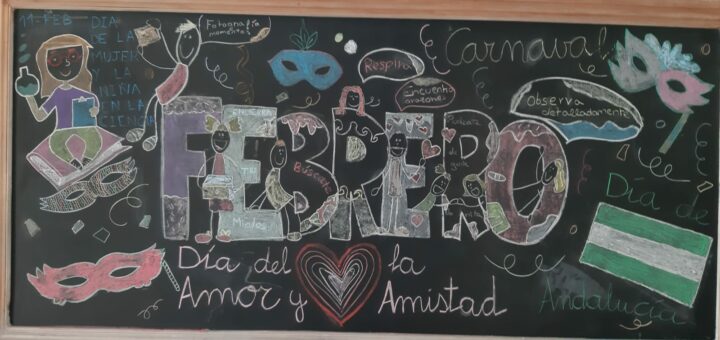 11-FEB DIA
DE LA
MUJER
Y LA
NIÑA
EN LA
CIENCIA
Fotografía
momentos
Respira
Encuentra
Carnaval
Observa
detalladamente
FEBRERO
Búscate
Miedos
Día del
la
Amor y
Amistad
Día de
Andalucía